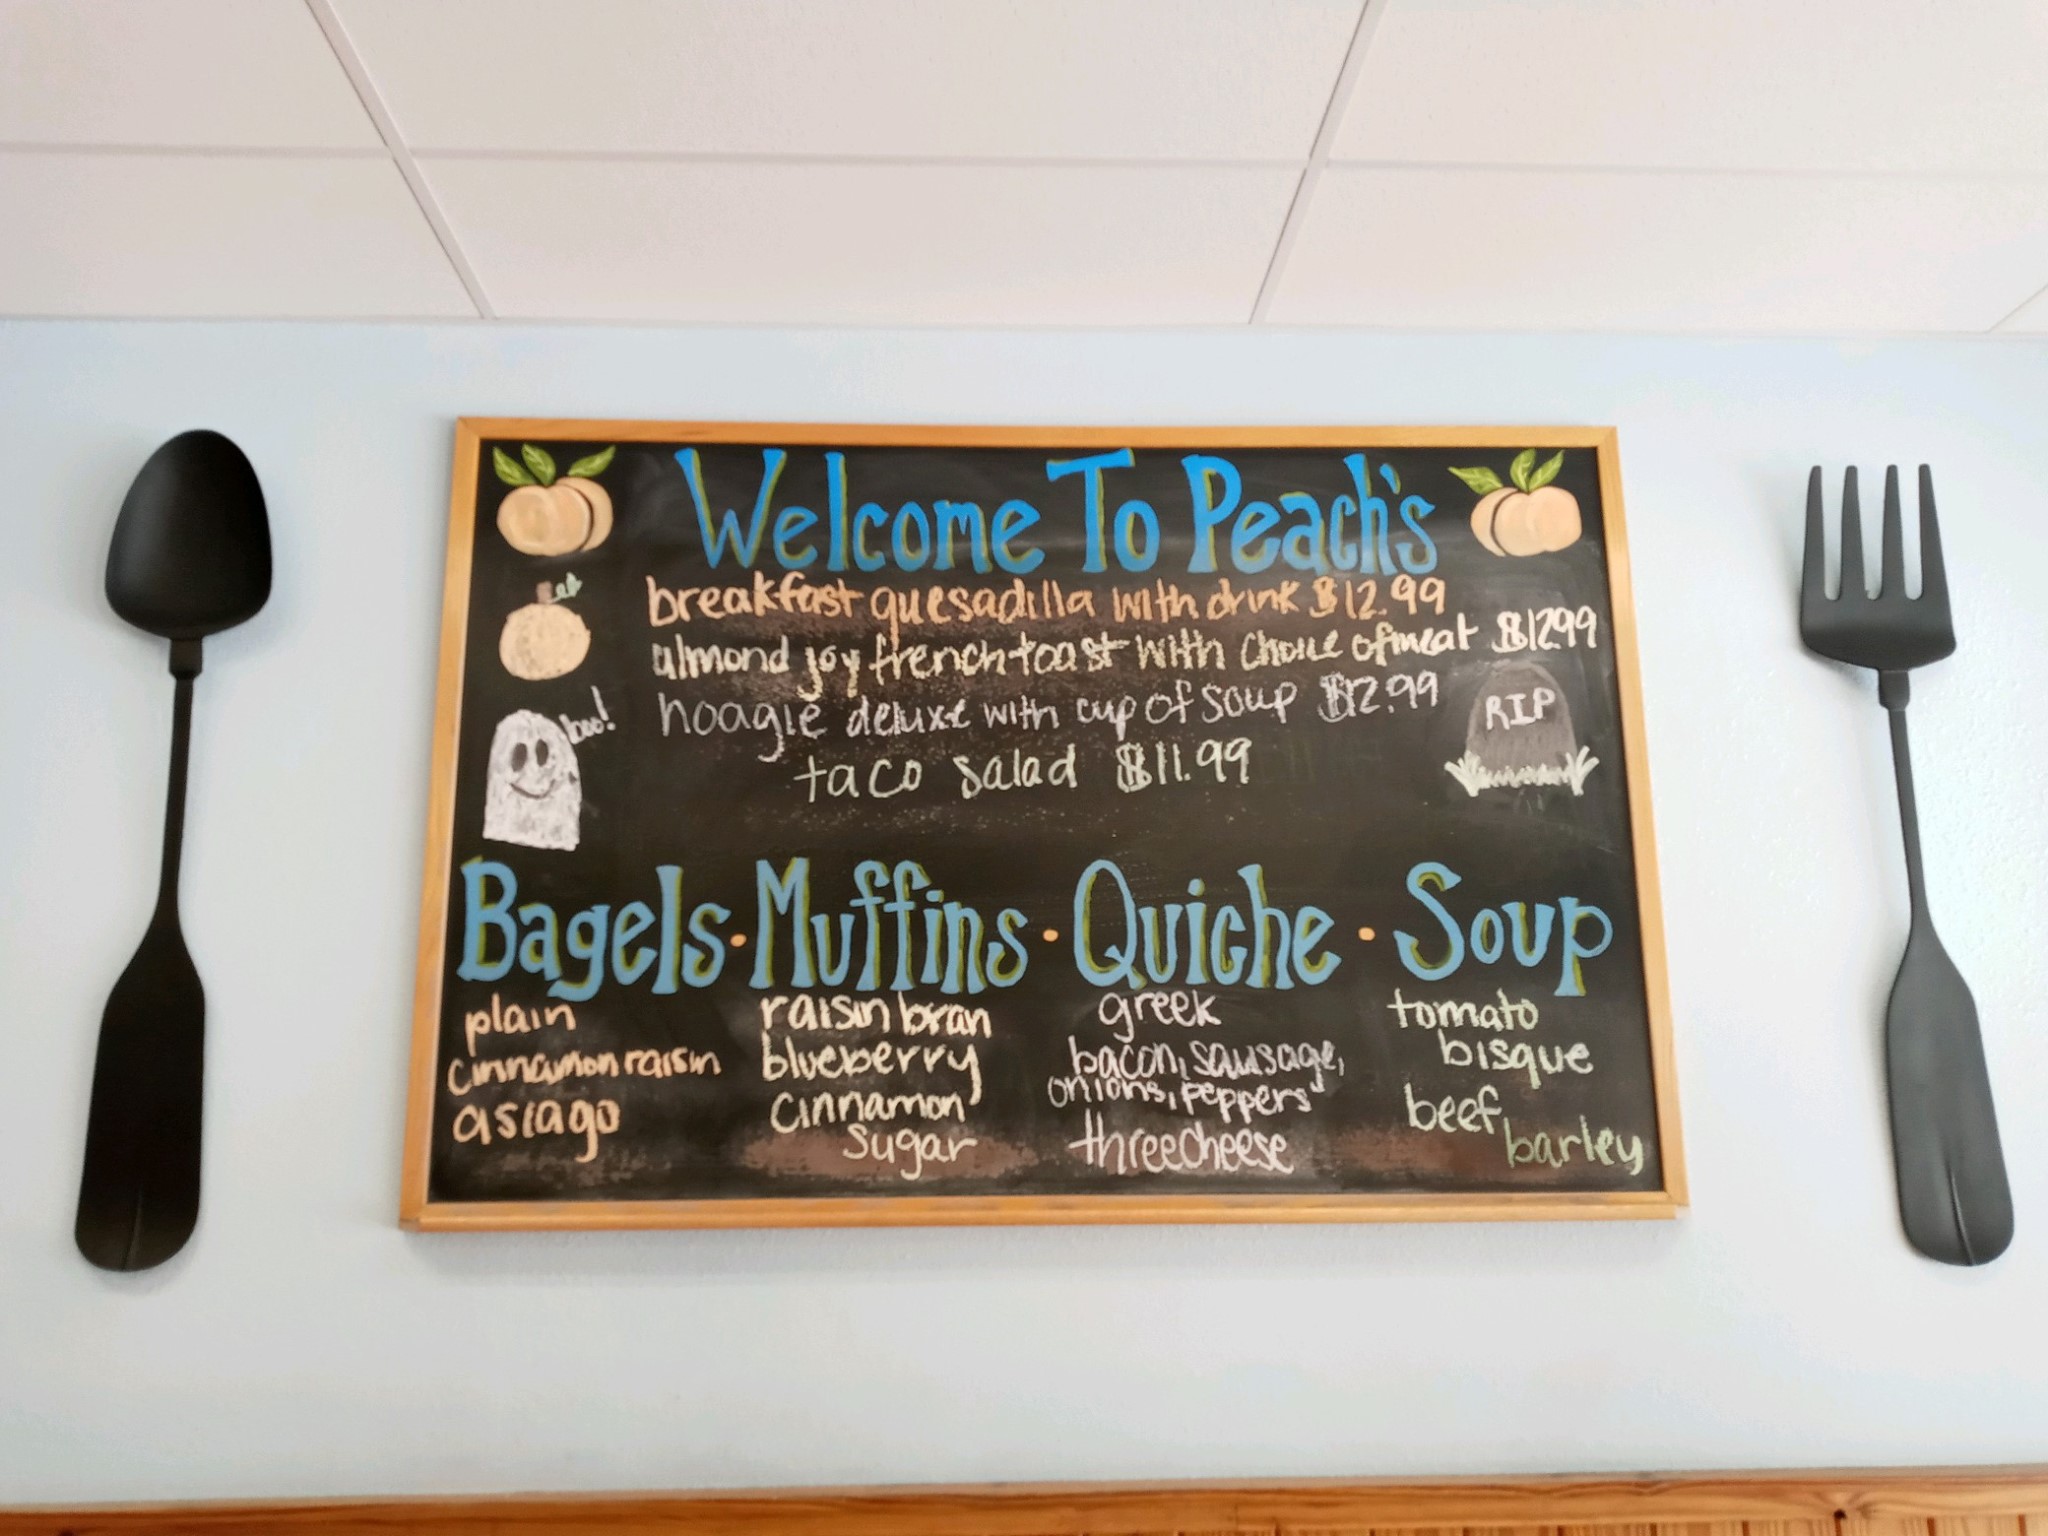 Welcome To Peach's
breakfast quesadilla with drink $12.99
almond joy french toast with choice of meat $12.99
boo!
hoagie deluxe with cup of soup $12.99
RIP
taco salad $11.99
Bagels · Muffins · Quiche · Soup
plain
cinnamon raisin
asiago
raisin bran
blueberry
cinnamon
sugar
greek
bacon, sausage,
onions, peppers
three cheese
tomato
bisque
beef
barley